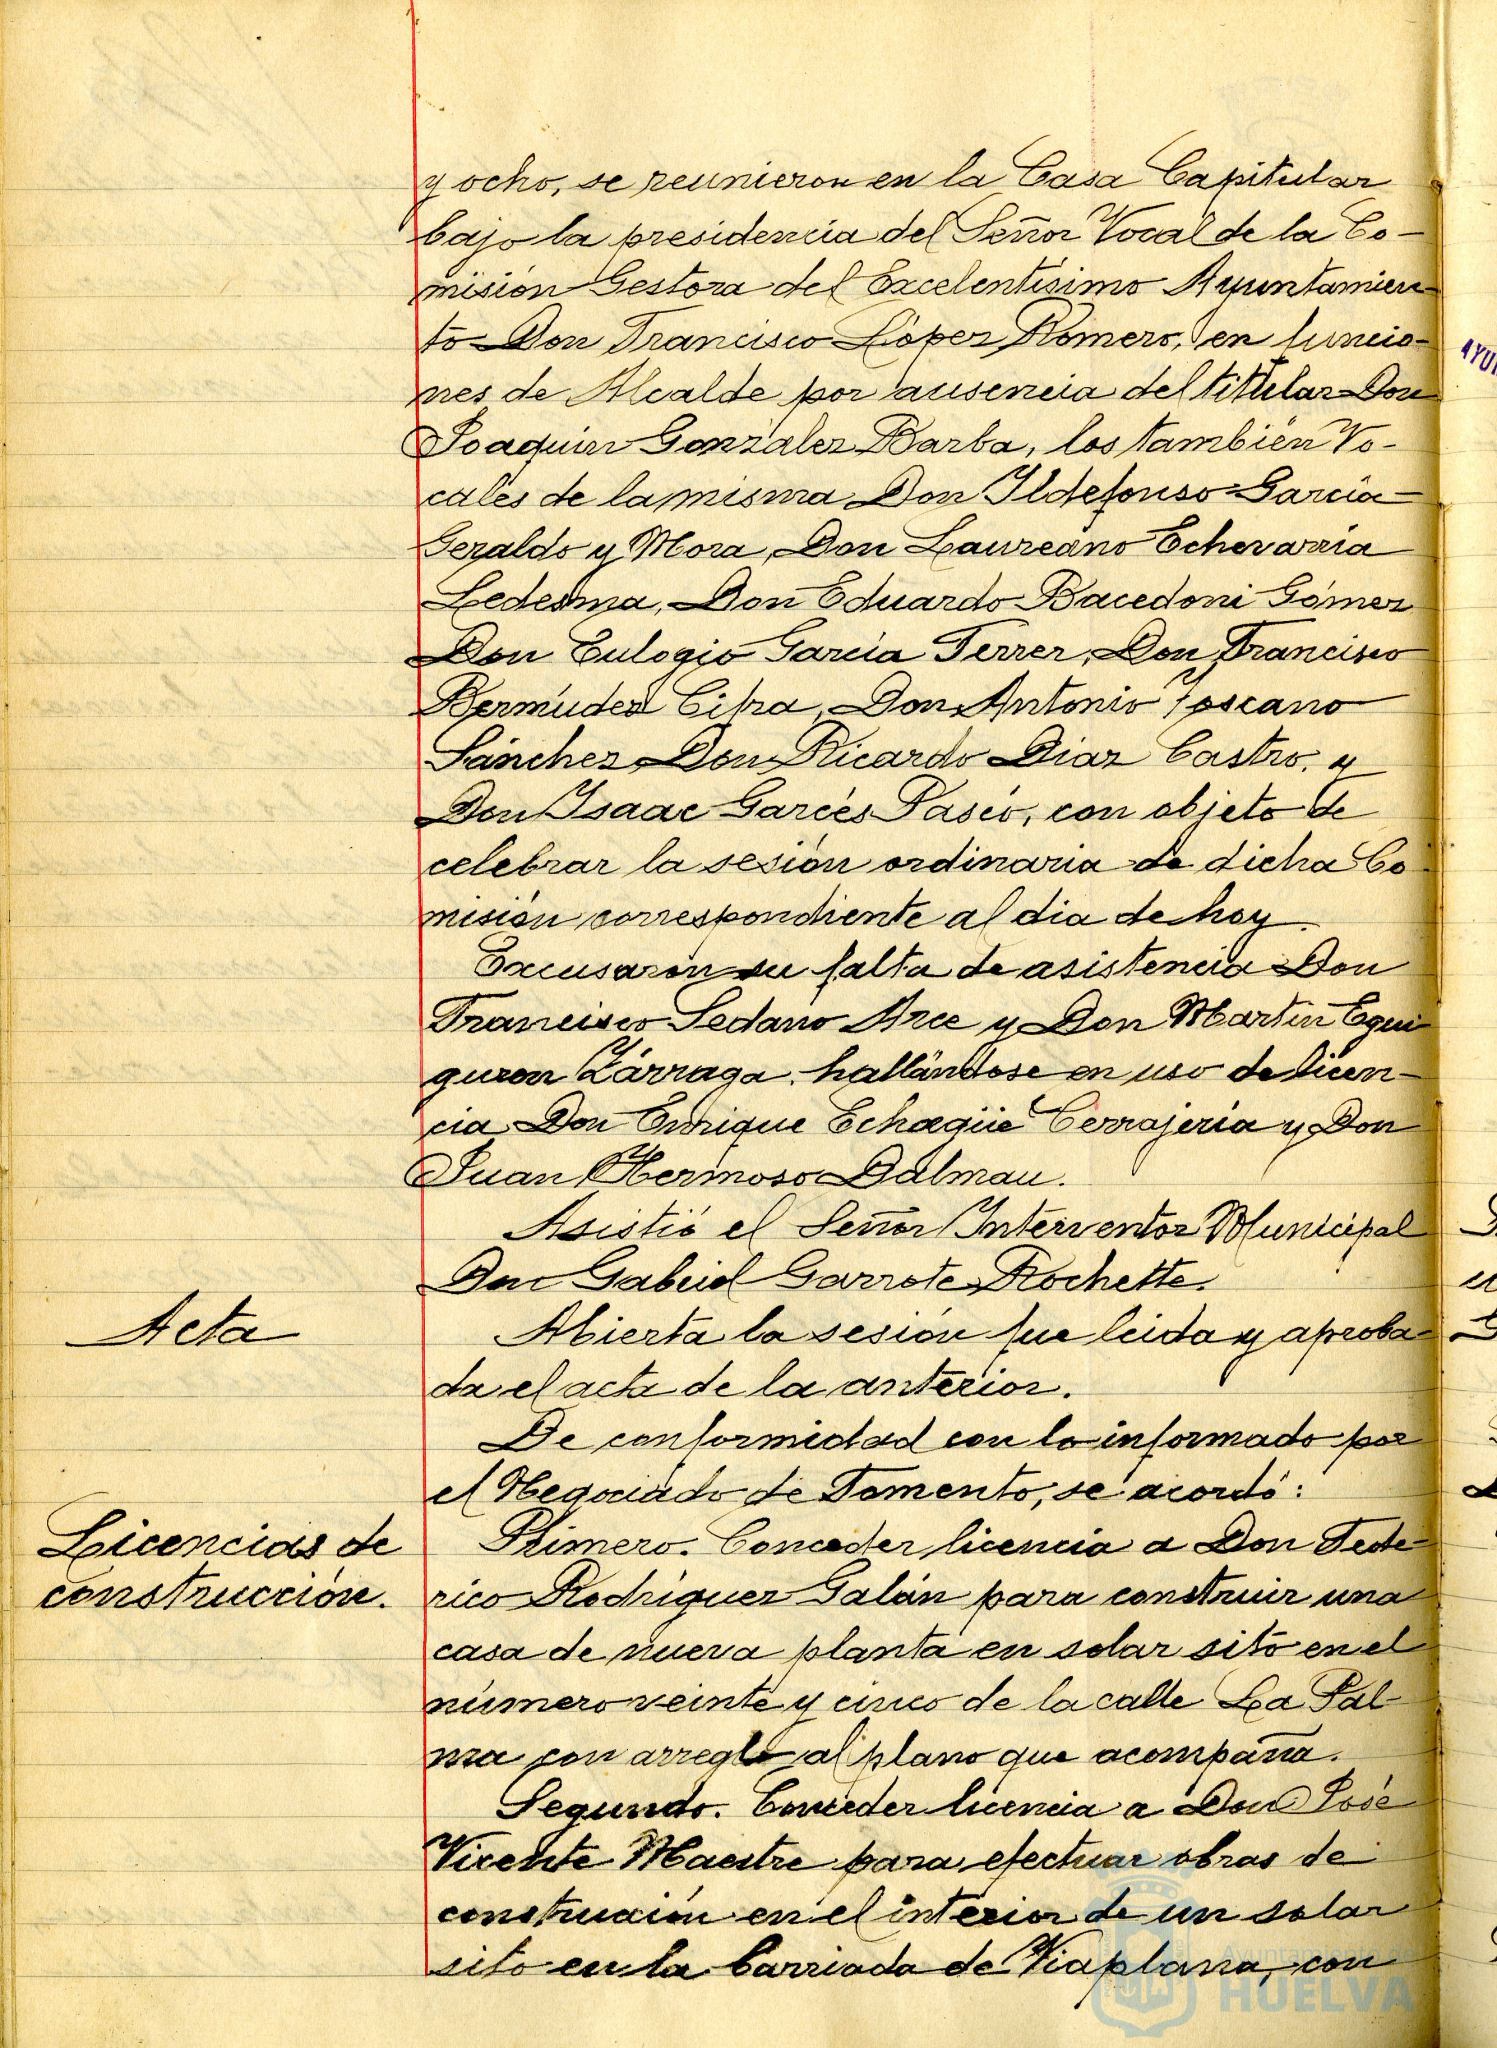 y ocho, se reunieron en la Casa Capitular
bajo la presidencia del Señor Vocal de la Co-
misión Gestora del Excelentísimo Ayuntamien-
to Don Francisco López Romero, en funcio-
nes de Alcalde por ausencia del titular Don
Joaquin González Barba, los también Vo-
cales de la misma Don Ildefonso Garcia
Geraldo y Mora, Don Laureano Echevarria
Ledesma, Don Eduardo Bacedoni Gómez
Don Eulogio Garcia Ferrer, Don Francisco
Bermúdez Cifra, Don Antonio Toscano
Sánchez Don Ricardo Diaz Castro, y
Don Isaac Garcés Paseo, con objeto de
celebrar la sesión ordinaria de dicha Co
misión correspondiente al dia de hoy.
Excusaron su falta de asistencia Don
Francisco Sedano Arce y Don Martin Egui
guren Zárraga, hallándose en uso de licen-
cia Don Enrique Echagüe Cerrajeria y Don
Juan Hermoso Dalmau.
Asistió el Señor Interventor Municipal
Don Gabriel Garrote Rochette.
Acta
Abierta la sesión fue leida y aproba-
da el acta de la anterior.
De conformidad con lo informado por
el Negociado de Fomento, se acordó:
Licencias de
construcción.
Primero. Conceder licencia a Don Fede-
rico Rodriguez Galán para construir una
casa de nueva planta en solar sito en el
número veinte y cinco de la calle La Pal-
ma con arreglo al plano que acompaña.
Segundo. Conceder licencia a Don José
Vicente Maestre para efectuar obras de
construción en el interior de un solar
sito en la barriada de Viaplana, con
Ayuntamiento de
HUELVA